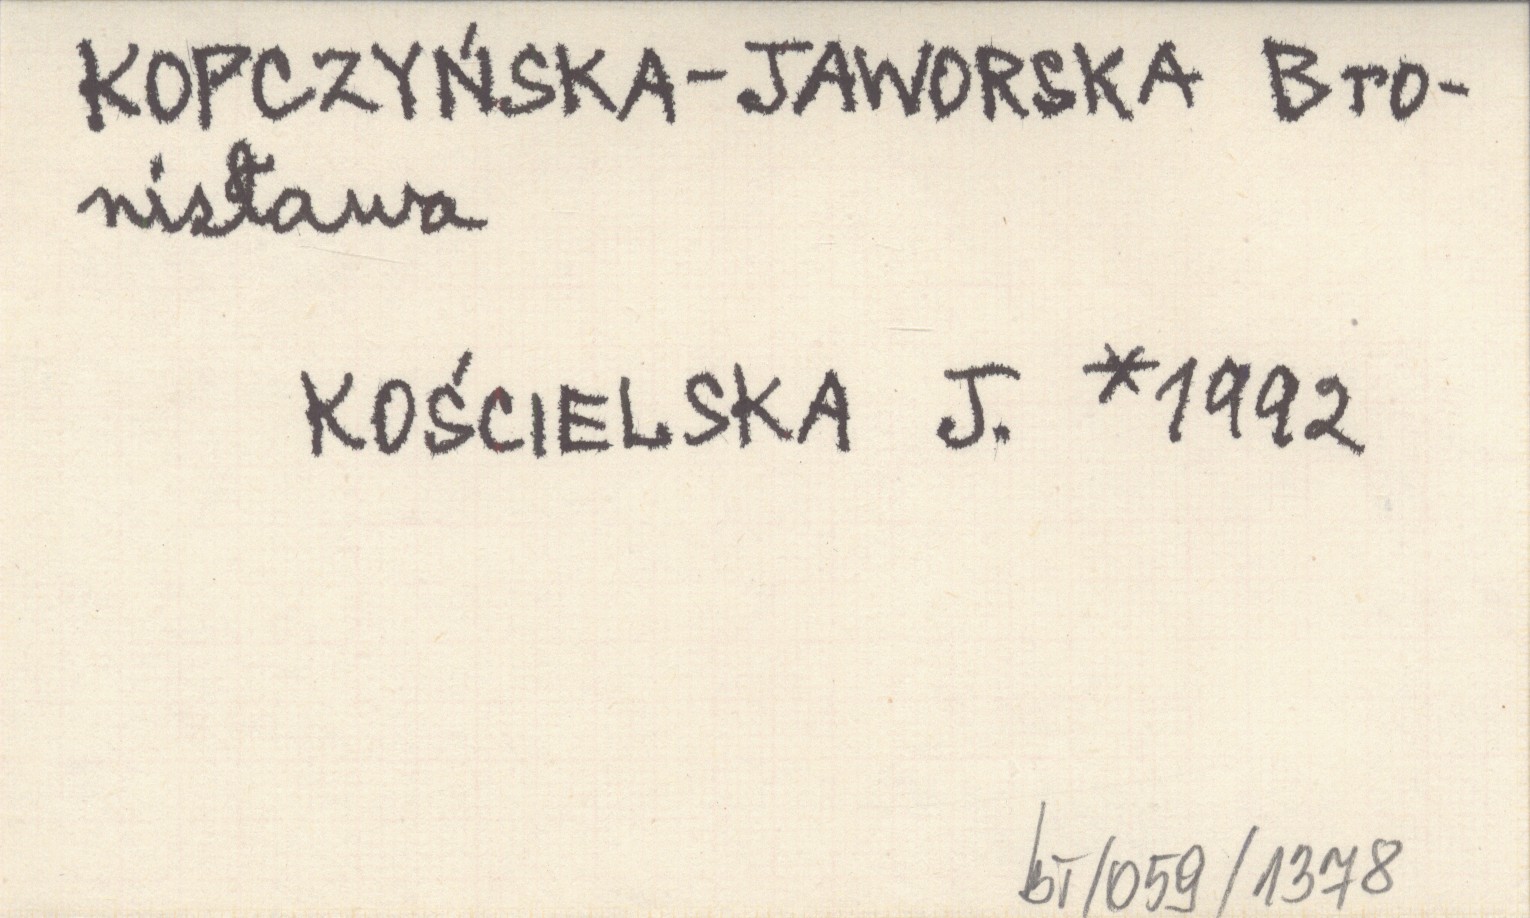 KOPCZYŃSKA-JAWORSKA Bro-
nisława
KOŚCIELSKA J. *1992
bī/059/1378